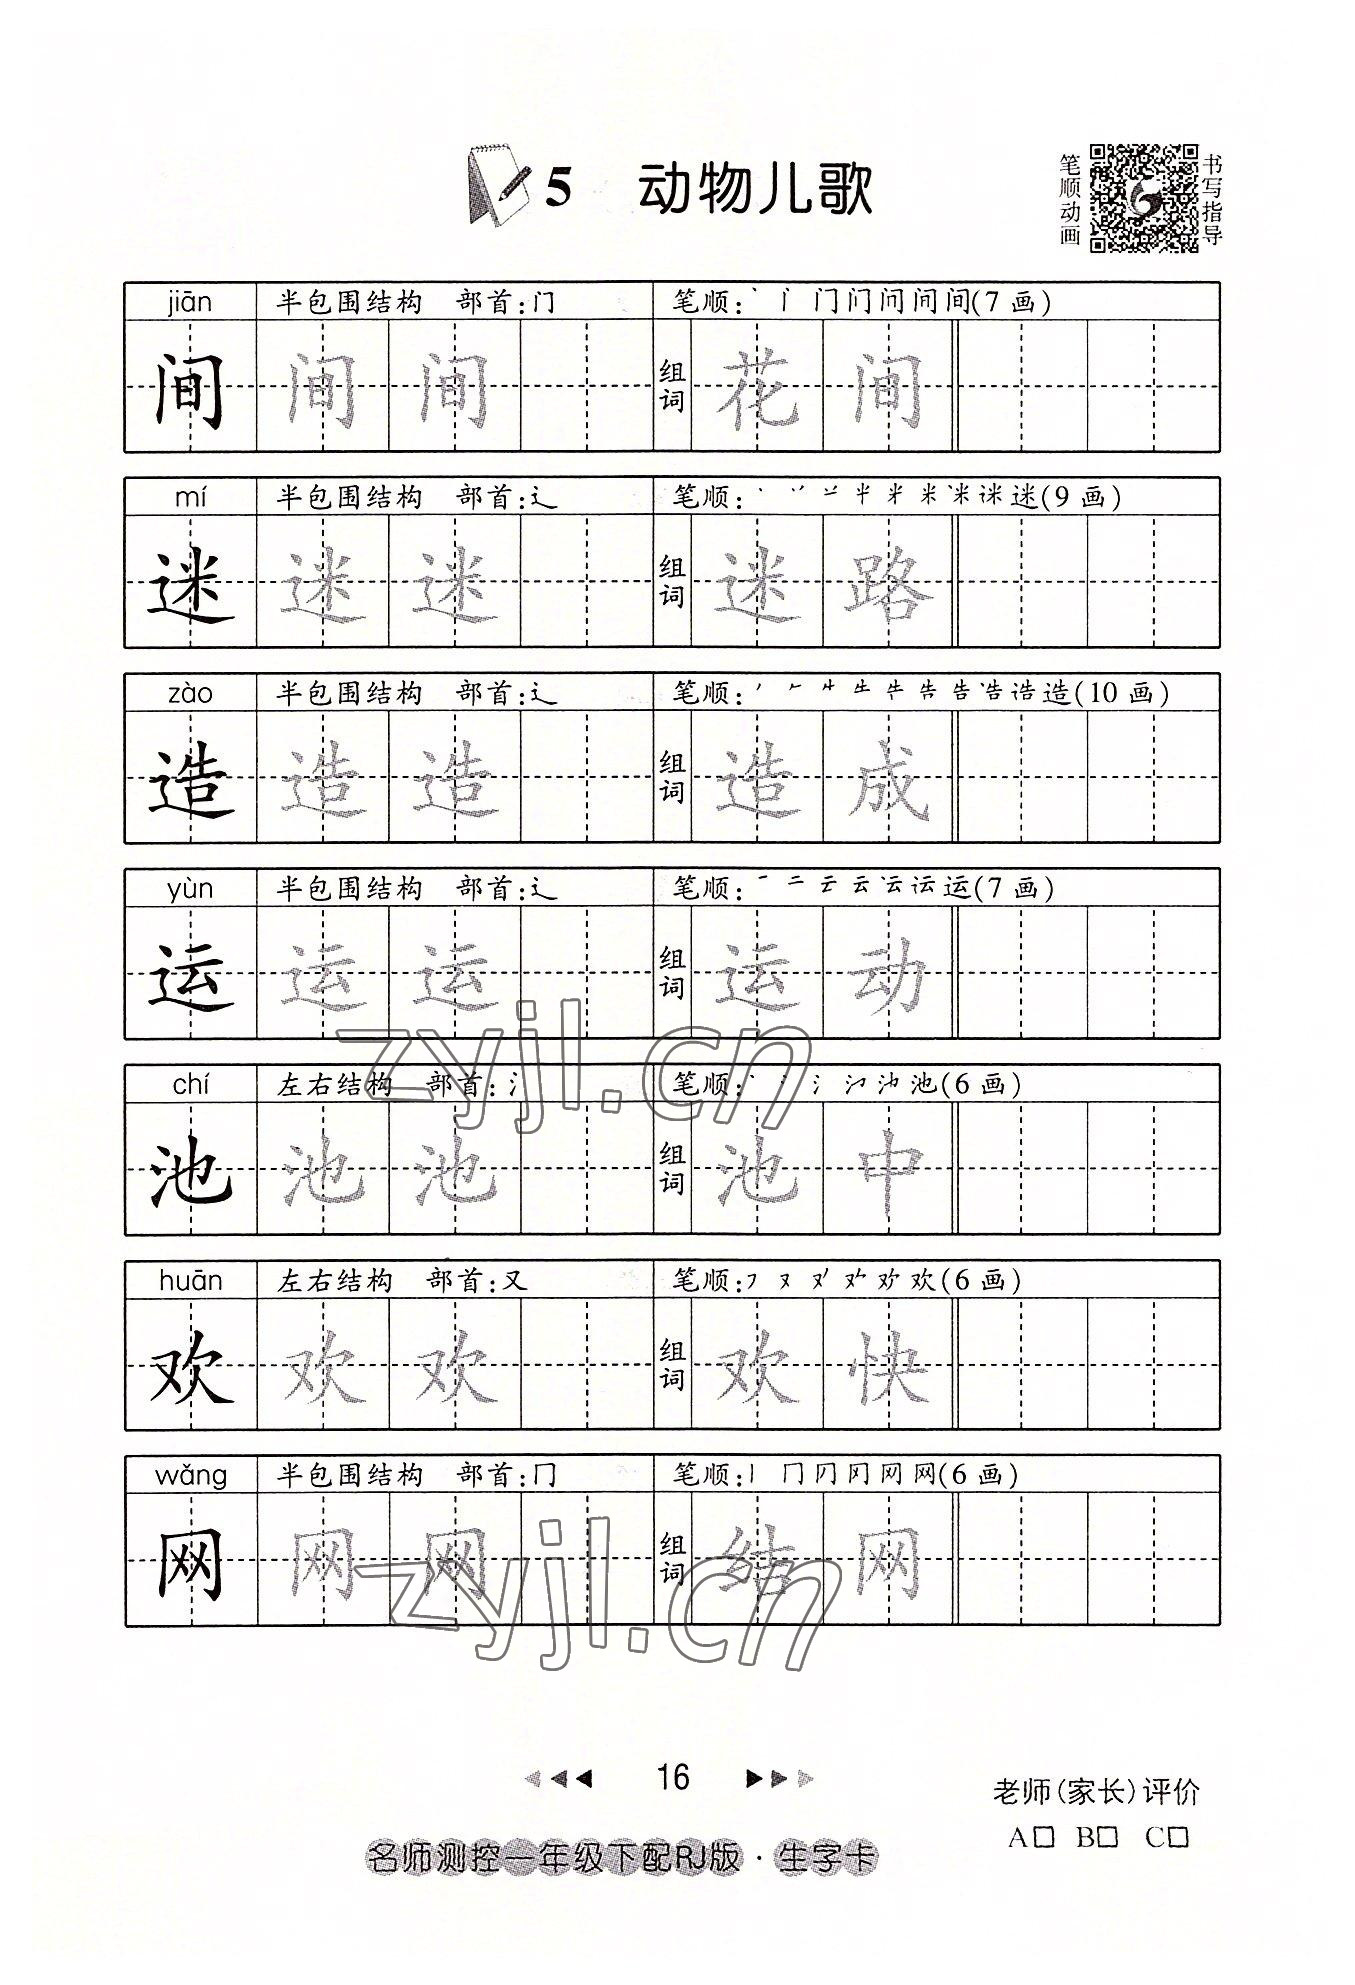 5 动物儿歌
笔顺动画
书写指导
jiān 半包围结构 部首:门 笔顺:丶 门 门 问 间(7画)
间 间 间 组词 花 间
mí 半包围结构 部首:辶 笔顺: 米 迷(9画)
迷 迷 迷 组词 迷 路
zào 半包围结构 部首:辶 笔顺: 告 造(10画)
造 造 造 组词 造 成
yùn 半包围结构 部首:辶 笔顺:一 二 云 云 运(7画)
运 运 运 组词 运 动
chí 左右结构 部首:氵 笔顺:丶 氵 池(6画)
池 池 池 组词 池 中
huān 左右结构 部首:又 笔顺:㇇ 又 欢(6画)
欢 欢 欢 组词 欢 快
wǎng 半包围结构 部首:冂 笔顺:丨 冂 冈 网(6画)
网 网 网 组词 结 网
zyjl.cn
zyjl.cn
16
老师(家长)评价
A□ B□ C□
名师测控一年级下配RJ版·生字卡